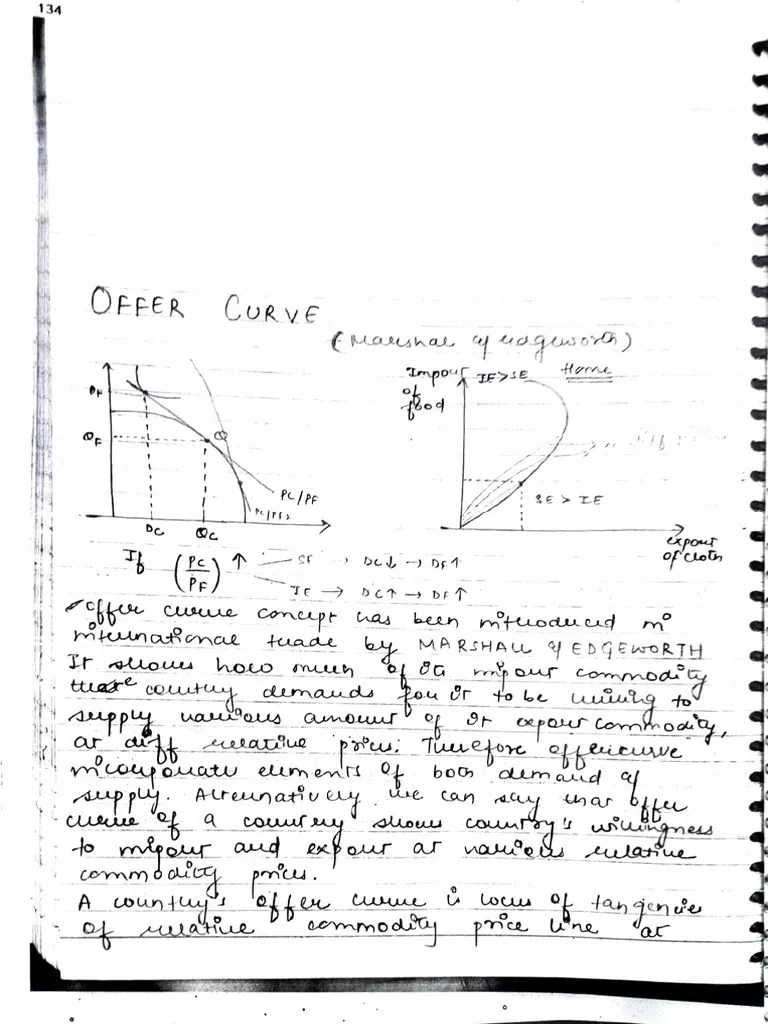 134
OFFER CURVE
(Marshal & Edgeworth)
DF
QF
DC
QC
PC/PF
PC/PF2
Import of food
IE>SE
Home
SE > IE
export of cloth
If (PC/PF) ↑ — SE → DC↓ → DF↑
IE → DC↑ → DF↑
Offer curve concept has been introduced in
international trade by MARSHALL & EDGEWORTH
It shows how much of its import commodity
that country demands for it to be willing to
supply various amount of it export commodity,
at diff relative prices. Therefore offercurve
incorporate elements of both demand &
supply. Alternatively we can say that offer
curve of a country shows country's willingness
to import and export at various relative
commodity prices.
A country's offer curve is locus of tangencies
of relative commodity price line at